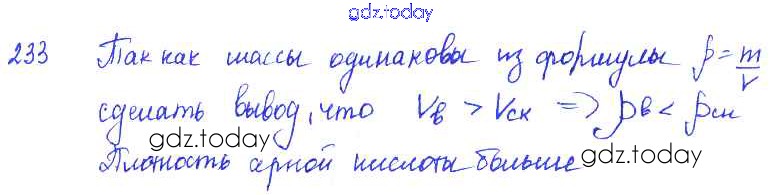 gdz.today
233 Так как массы одинаковы из формулы ρ = m/V
сделать вывод, что Vв > Vск => ρв < ρск
gdz.today
gdz.today
Плотность серной кислоты больше